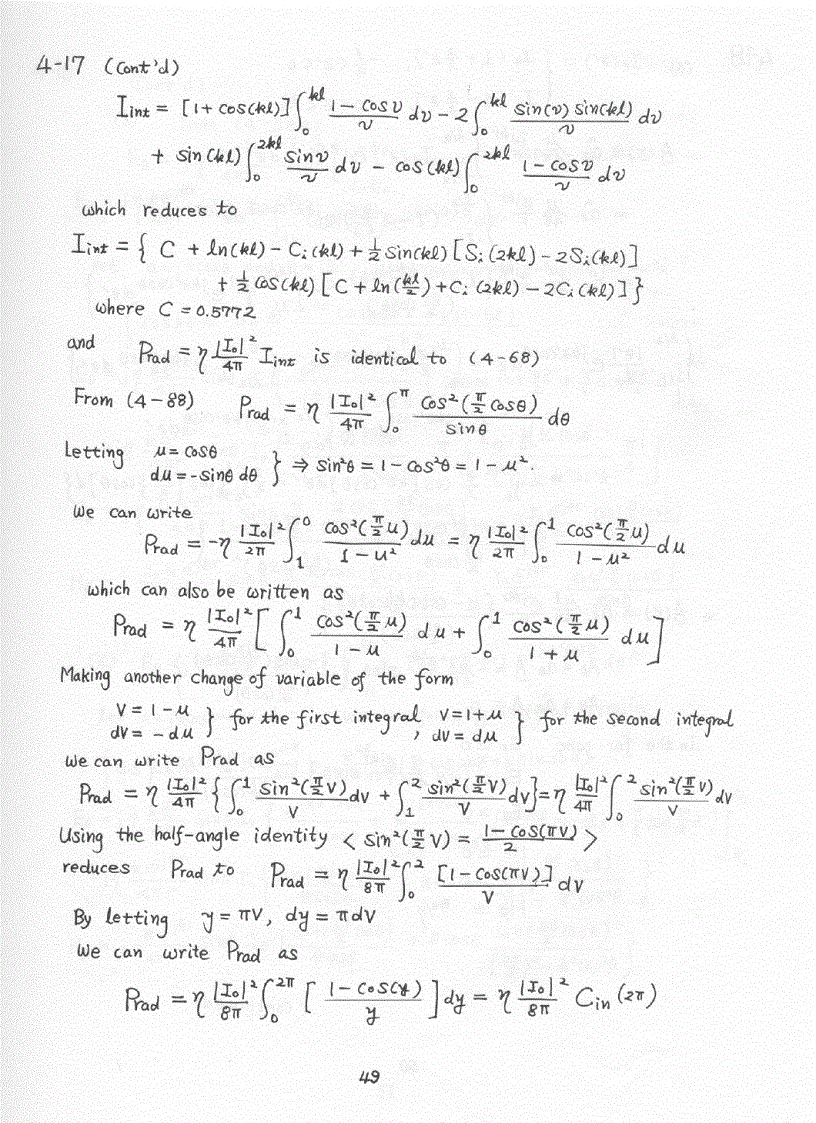 4-17 (Cont'd)
I_int = [1 + cos(kl)] ∫_0^{kl} (1 - cos v)/v dv - 2 ∫_0^{kl} sin(v) sin(kl)/v dv
+ sin(kl) ∫_0^{2kl} sin v/v dv - cos(kl) ∫_0^{2kl} (1 - cos v)/v dv
which reduces to
I_int = { C + ln(kl) - C_i(kl) + 1/2 sin(kl) [S_i(2kl) - 2S_i(kl)]
+ 1/2 cos(kl) [C + ln(kl/2) + C_i(2kl) - 2C_i(kl)] }
where C = 0.5772
and Prad = η |I_0|²/4π I_int is identical to (4-68)
From (4-88) Prad = η |I_0|²/4π ∫_0^π cos²(π/2 cosθ)/sinθ dθ
Letting u = cosθ
du = -sinθ dθ } ⇒ sin²θ = 1 - cos²θ = 1 - u².
We can write
Prad = -η |I_0|²/2π ∫_1^0 cos²(π/2 u)/(1 - u²) du = η |I_0|²/2π ∫_0^1 cos²(π/2 u)/(1 - u²) du
which can also be written as
Prad = η |I_0|²/4π [ ∫_0^1 cos²(π/2 u)/(1 - u) du + ∫_0^1 cos²(π/2 u)/(1 + u) du ]
Making another change of variable of the form
V = 1 - u } for the first integral, V = 1 + u } for the second integral
dV = -du dV = du
We can write Prad as
Prad = η |I_0|²/4π { ∫_0^1 sin²(π/2 V)/V dv + ∫_1^2 sin²(π/2 V)/V dv } = η |I_0|²/4π ∫_0^2 sin²(π/2 V)/V dv
Using the half-angle identity < sin²(π/2 V) = (1 - cos(πV))/2 >
reduces Prad to Prad = η |I_0|²/8π ∫_0^2 [1 - cos(πV)]/V dv
By letting y = πV, dy = πdV
We can write Prad as
Prad = η |I_0|²/8π ∫_0^{2π} [ (1 - cos(y))/y ] dy = η |I_0|²/8π C_in(2π)
49